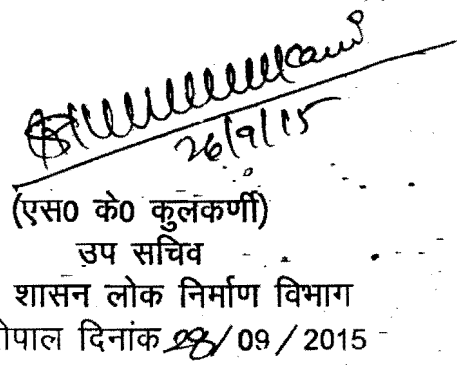 26/9/15
(एस0 के0 कुलकर्णी)
उप सचिव
शासन लोक निर्माण विभाग
ोपाल दिनांक 28/09/2015